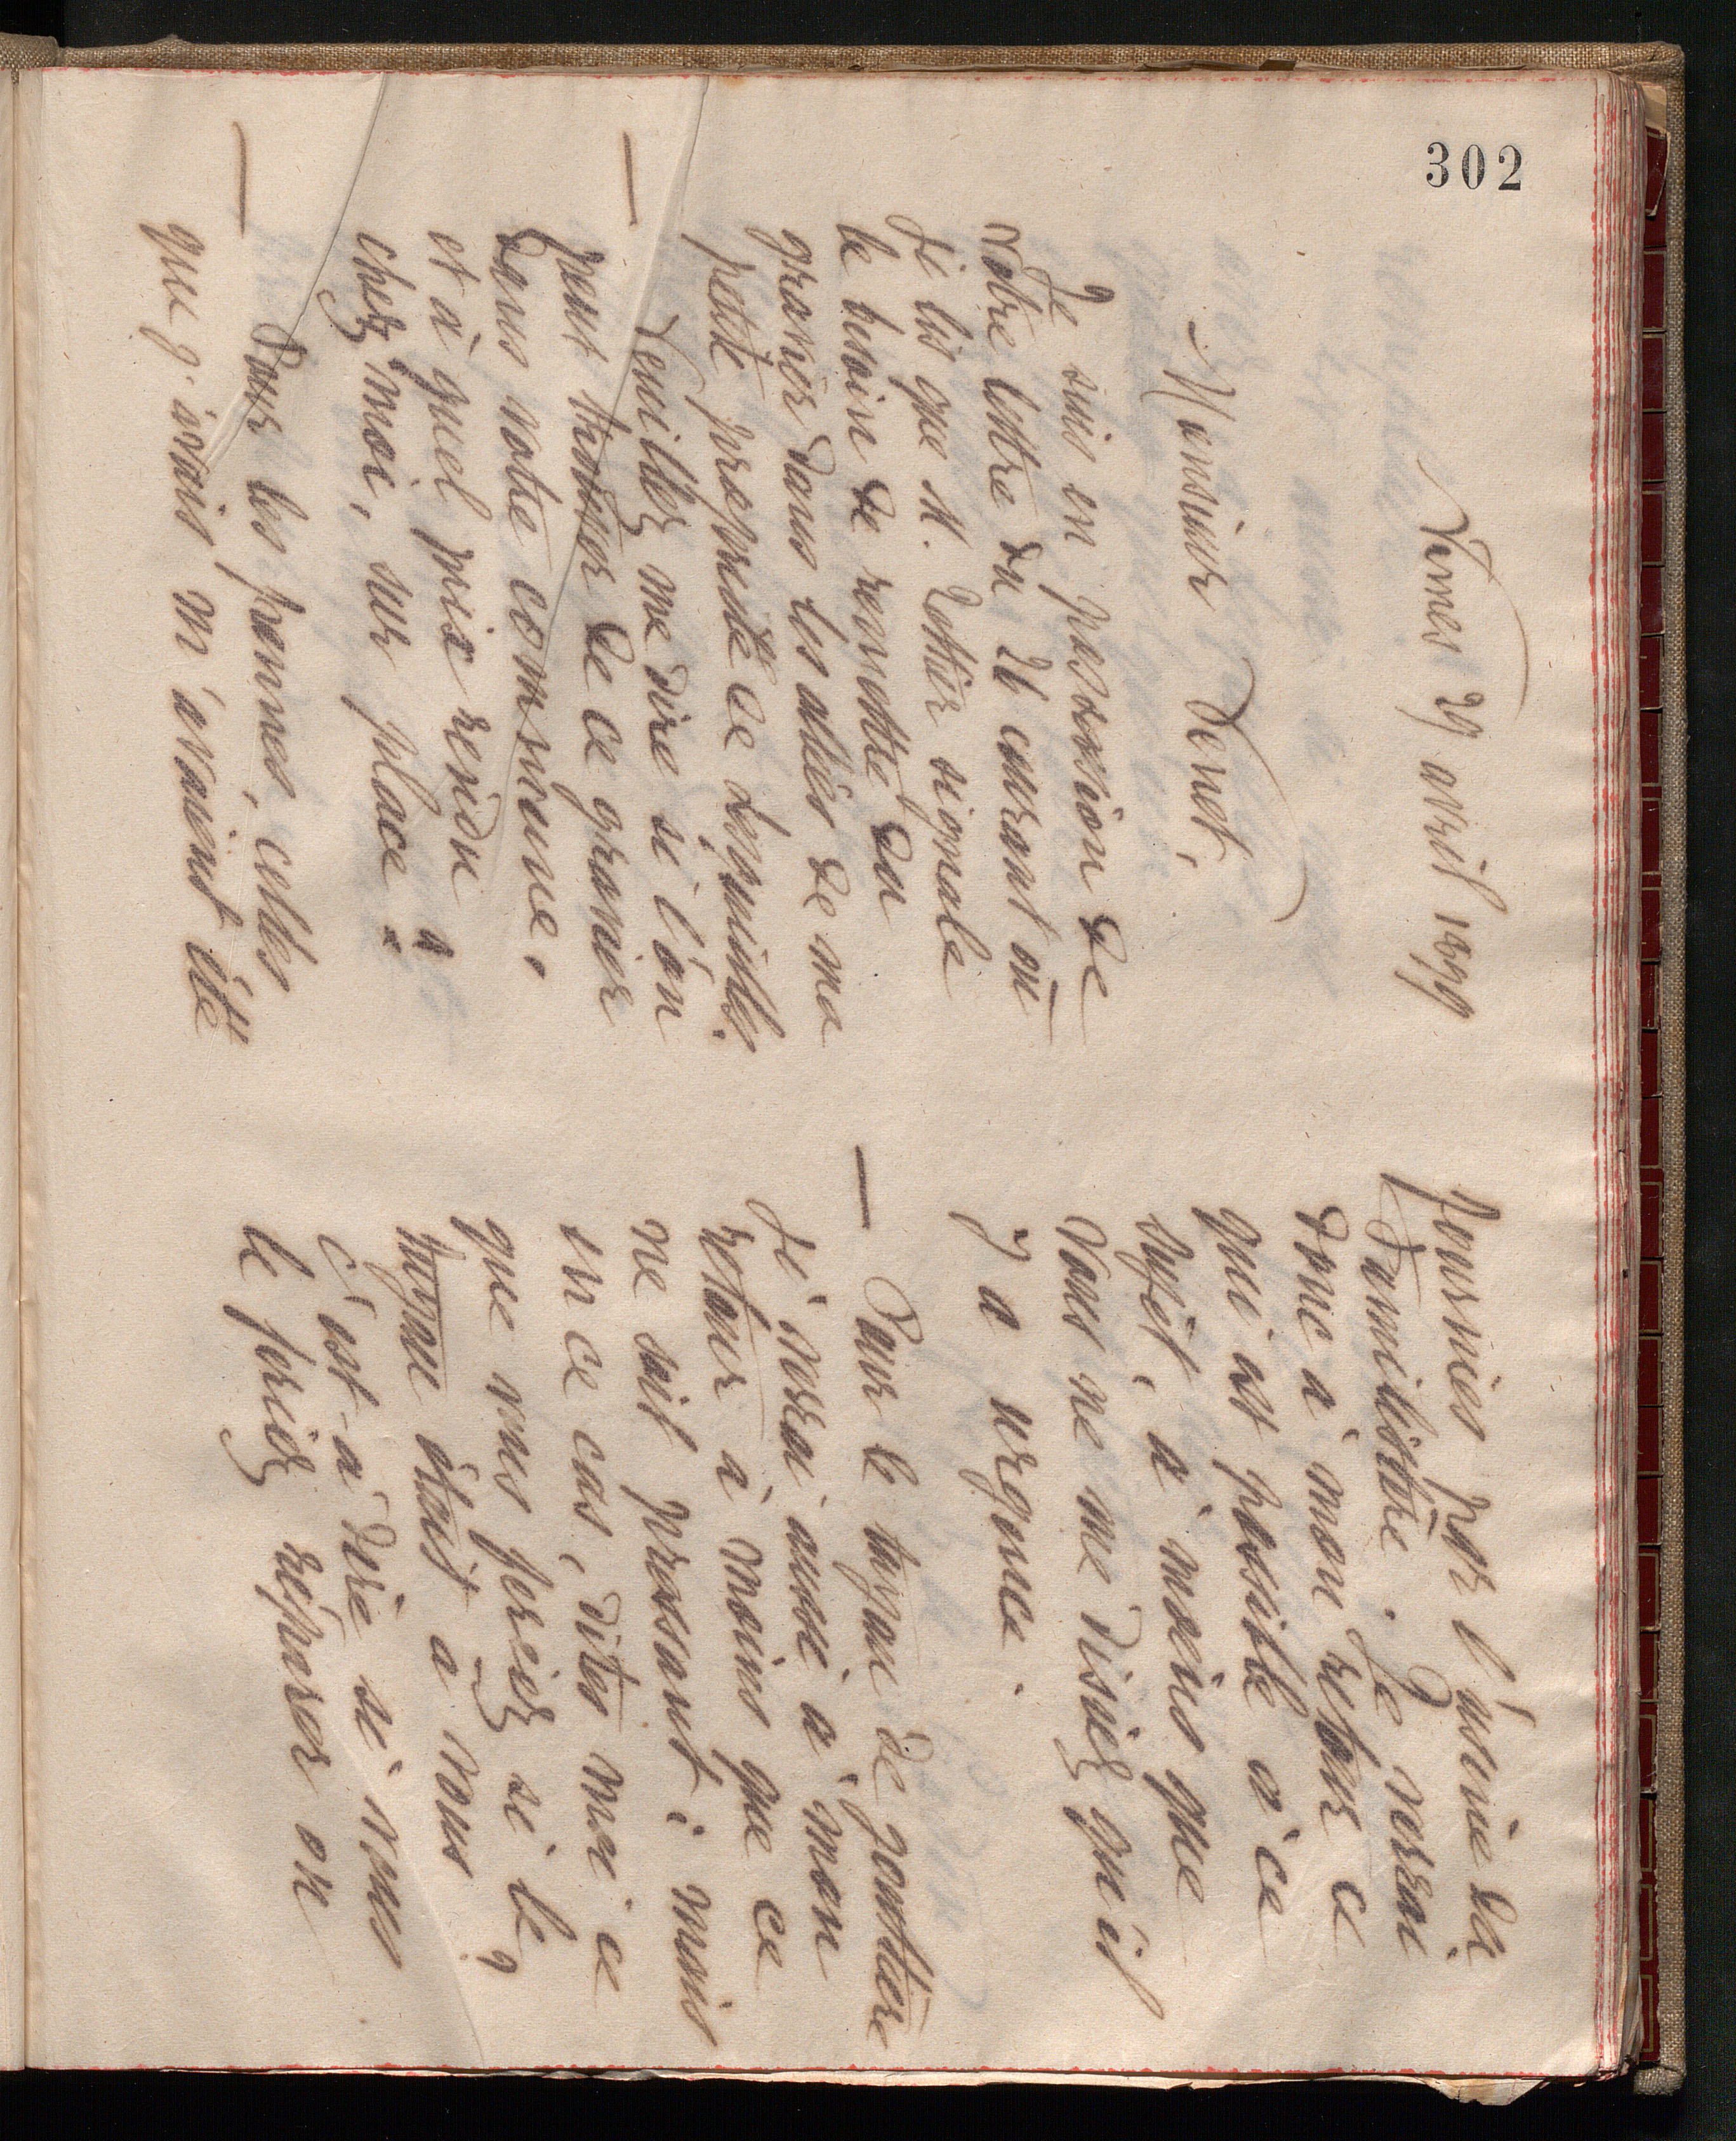 302
Nimes 29 avril 1899
Monsieur Denat,
Je suis en possession de
votre lettre du 26 courant où
je lis que M. Pottier signale
le besoin de remettre du
gravier dans les allées de ma
petite propriété de Lesquielles.
Veuillez me dire si l'on
peut trouver de ce gravier
dans votre commune,
et à quel prix rendu
chez moi, sur place.
Pour les pannes, celles
que j'avais m'avaient été
fournies par l'usine de
Je verrai
donc à mon retour ce
qui est possible à ce
sujet, à moins que
vous ne me disiez qu'il
y a urgence.
Pour le tuyau de gouttière
je verrai aussi à mon
retour à moins que ce
ne soit pressant : mais
en ce cas, dites moi ce
que vous feriez si le
tuyau était à vous,
c'est-à-dire si vous
le feriez réparer ou